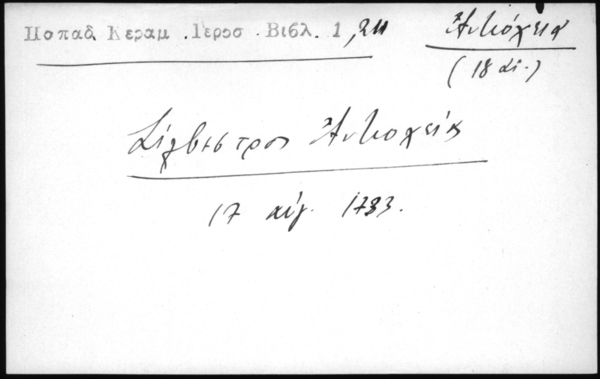 Ποπαδ Κεραμ .Ιεροσ .Βιβλ. 1,211
Ἀντιόχεια
(18 αἰ.)
Σίλβεστρος Ἀντιοχείας
17 αὐγ. 1733.